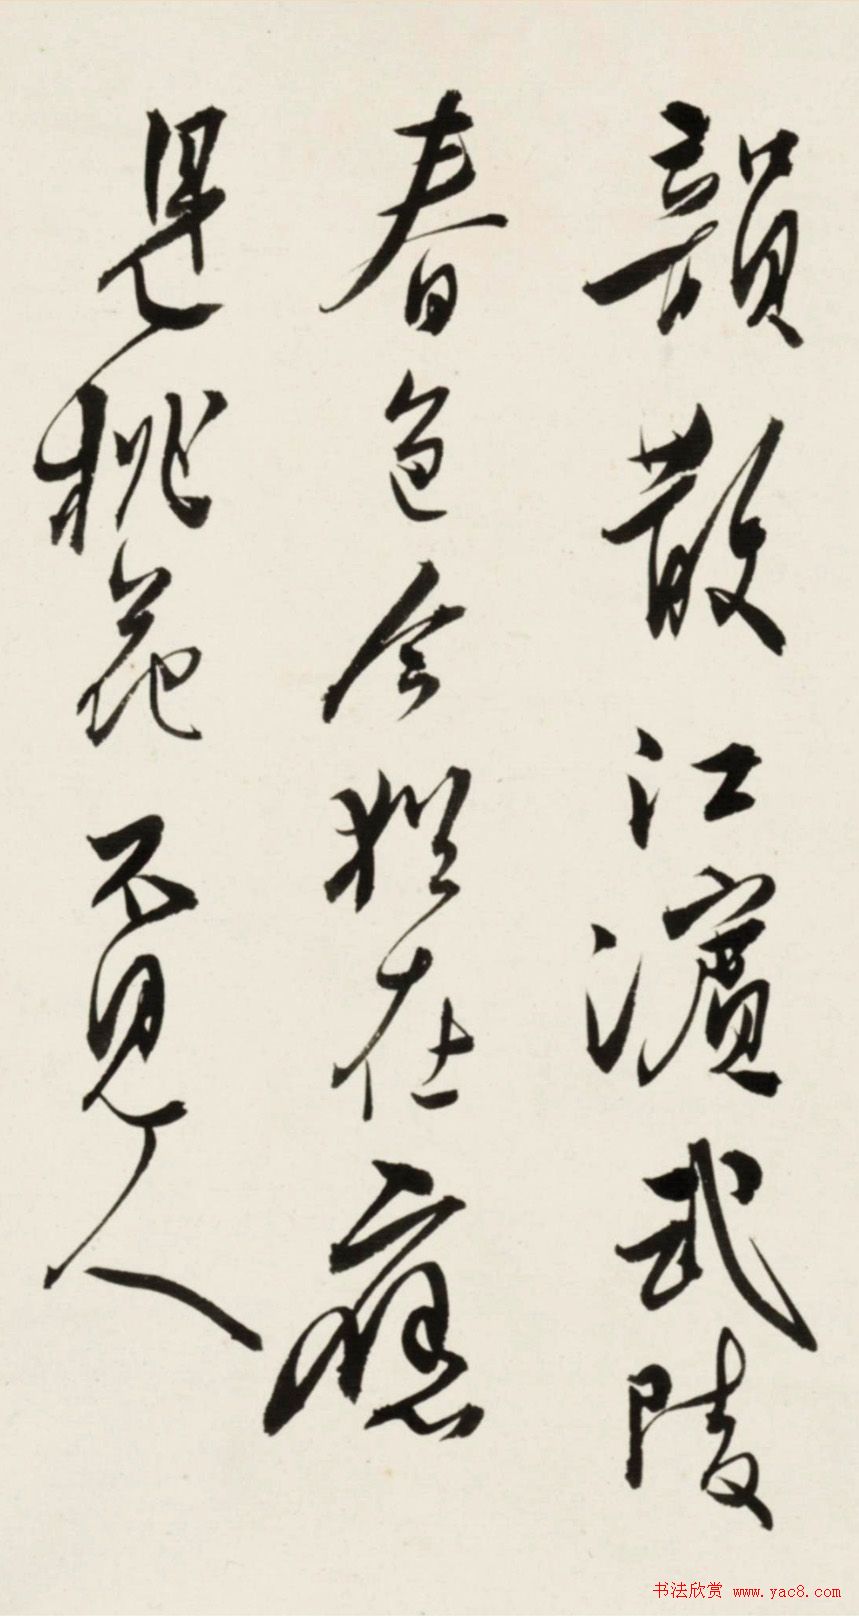 韻散江濱武陵
春色今猶在應
是桃花不見人
书法欣赏 www.yac8.com